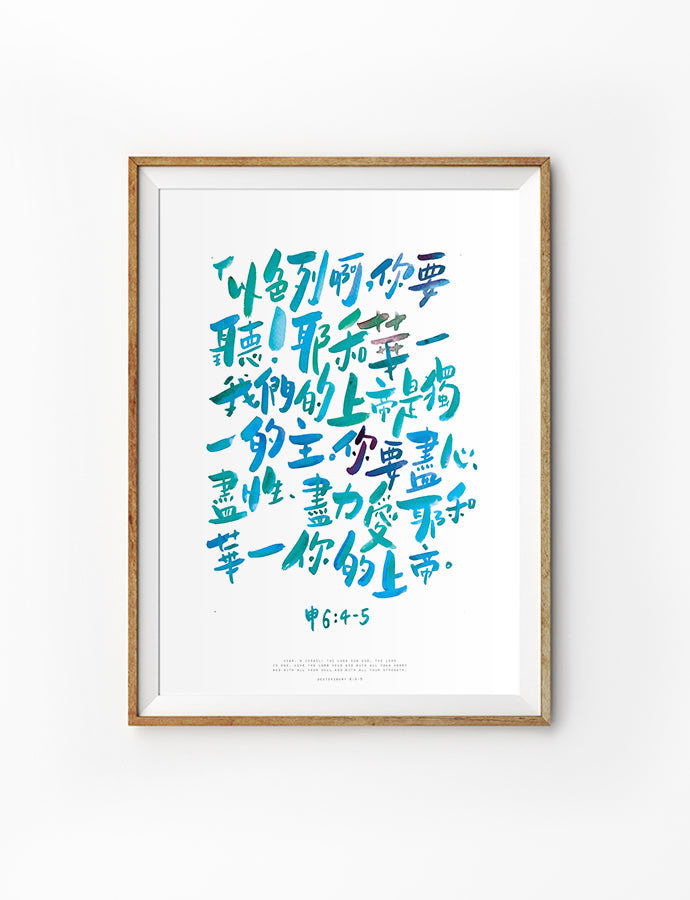 「以色列啊,你要
聽!耶和華一
我們的上帝是獨
一的主。你要盡心、
盡性、盡力愛耶和
華一你的上帝。
申6:4-5
HEAR, O ISRAEL! THE LORD OUR GOD, THE LORD
IS ONE. LOVE THE LORD YOUR GOD WITH ALL YOUR HEART
AND WITH ALL YOUR SOUL AND WITH ALL YOUR STRENGTH.
DEUTERONOMY 6:4-5